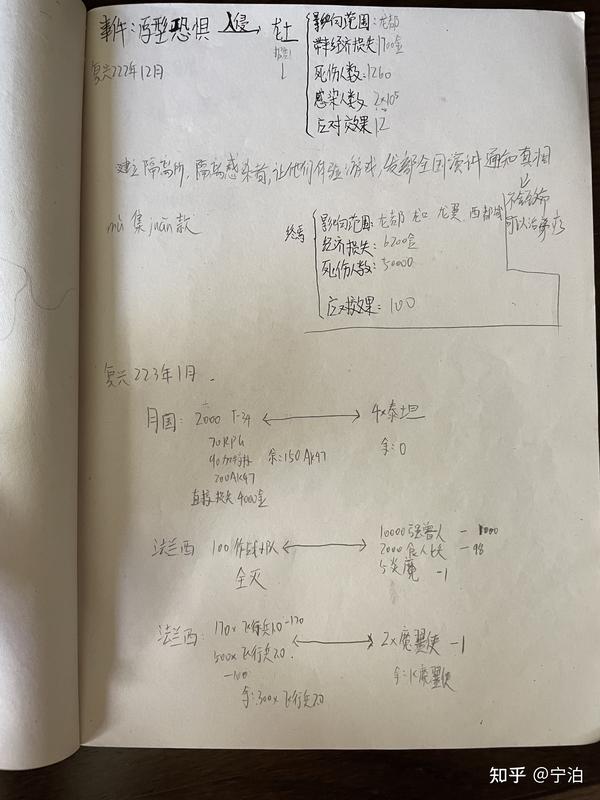 事件：原型恐惧 入侵→ 龙土
影响范围：龙都
带来经济损失1700金
死伤人数：1260
感染人数 2×10⁵
应对效果 12
复兴222年12月
建立隔离所，隔离感染者，让他们体验游戏，发部全国演件通知真相
不会致命
可以治疗
mù 集 juān 款
终焉
影响范围：龙都 龙口 龙翼 西部城
经济损失：6200金
死伤人数：50000
应对效果：100
复兴223年1月.
月国：2000 T-34 ↔ 4×泰坦
70RPG
余：0
90加特林 余：150AK47
200AK47
直接损失4000金
法兰西 100作战小队 ↔ 10000强兽人 -1000
2000食人 -98
全灭
5炎魔 -1
法兰西：170×飞行兵1.0 -170
500×飞行兵2.0 ↔ 2×魔翼使 -1
-100
余：1×魔翼使
余：300×飞行兵2.0
知乎 @宁泊